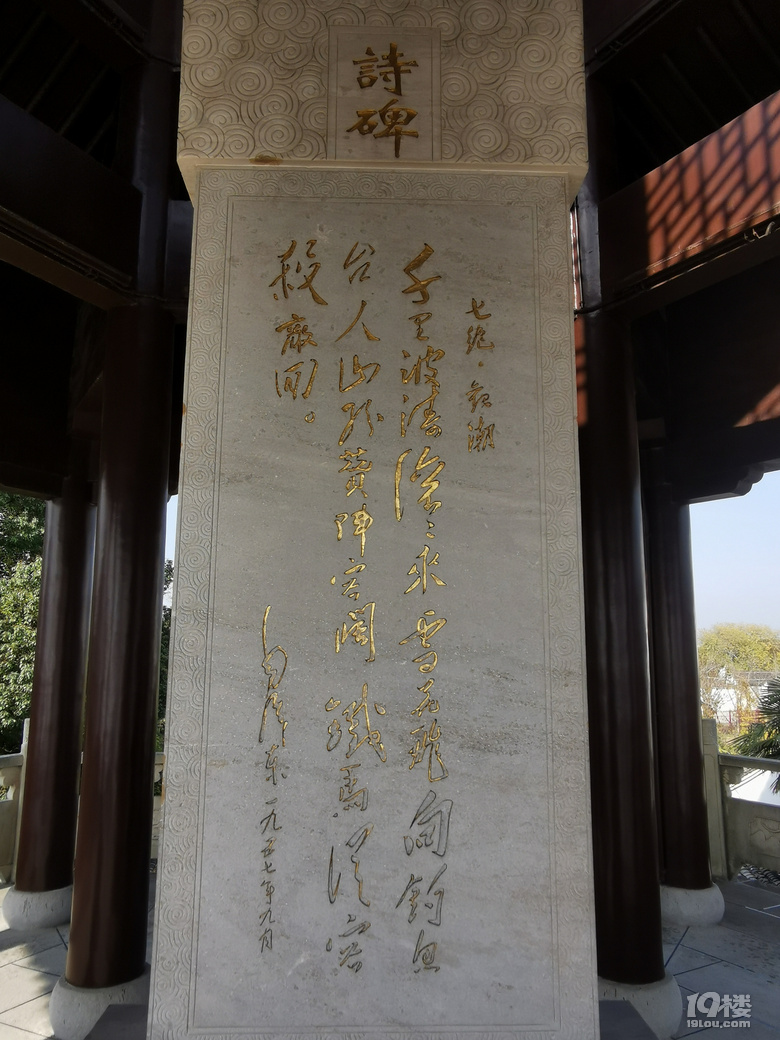 詩碑
七绝·观潮
千里波涛滚〻来雪花飛向钓鱼
台人山纷赞阵容阔鐵馬从容
殺敵回。
毛泽东一九五七年九月
19楼
19lou.com